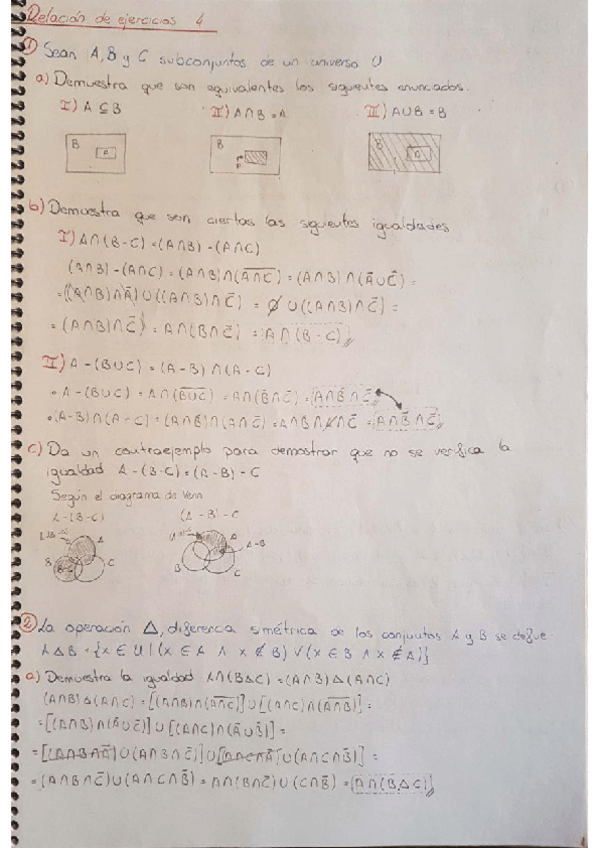 Relación de ejercicios 4
① Sean A, B y C subconjuntos de un universo U
a) Demuestra que son equivalentes los siguientes enunciados.
I) A ⊆ B II) A∩B = A III) A∪B = B
B A B A B A
b) Demuestra que son ciertas las siguientes igualdades
I) A∩(B-C) = (A∩B) - (A∩C)
(A∩B) - (A∩C) = (A∩B)∩(A̅∩̅C̅) = (A∩B)∩(A̅∪C̅) =
= ((A∩B)∩A̅)∪((A∩B)∩C̅) = ∅ ∪((A∩B)∩C̅) =
= (A∩B)∩C̅) = A∩(B∩C̅) = A∩(B-C)
II) A - (B∪C) = (A-B) ∩ (A-C)
• A - (B∪C) = A∩(B̅∪̅C̅) = A∩(B̅∩C̅) = A∩B̅∩C̅
• (A-B)∩(A-C) = (A∩B̅)∩(A∩C̅) = A∩B̅∩A∩C̅ = A∩B̅∩C̅
c) Da un contraejemplo para demostrar que no se verifica la
igualdad A - (B-C) = (A-B) - C
Según el diagrama de Venn
A-(B-C) (A-B)-C
A A
A-B
B B-C C B C
② La operación Δ, diferencia simétrica de los conjuntos A y B se define
A Δ B = {x ∈ U | (x ∈ A ∧ x ∉ B) ∨ (x ∈ B ∧ x ∉ A)}
a) Demuestra la igualdad A∩(BΔC) = (A∩B)Δ(A∩C)
(A∩B)Δ(A∩C) = [(A∩B)∩(A̅∩̅C̅)]∪[(A∩C)∩(A̅∩̅B̅)] =
= [(A∩B)∩(A̅∪C̅)]∪[(A∩C)∩(A̅∪B̅)] =
= [(A∩B∩A̅)∪(A∩B∩C̅)]∪[A∩C∩A̅)∪(A∩C∩B̅)] =
= (A∩B∩C̅)∪(A∩C∩B̅) = A∩(B∩C̅)∪(C∩B̅) = A∩(BΔC)